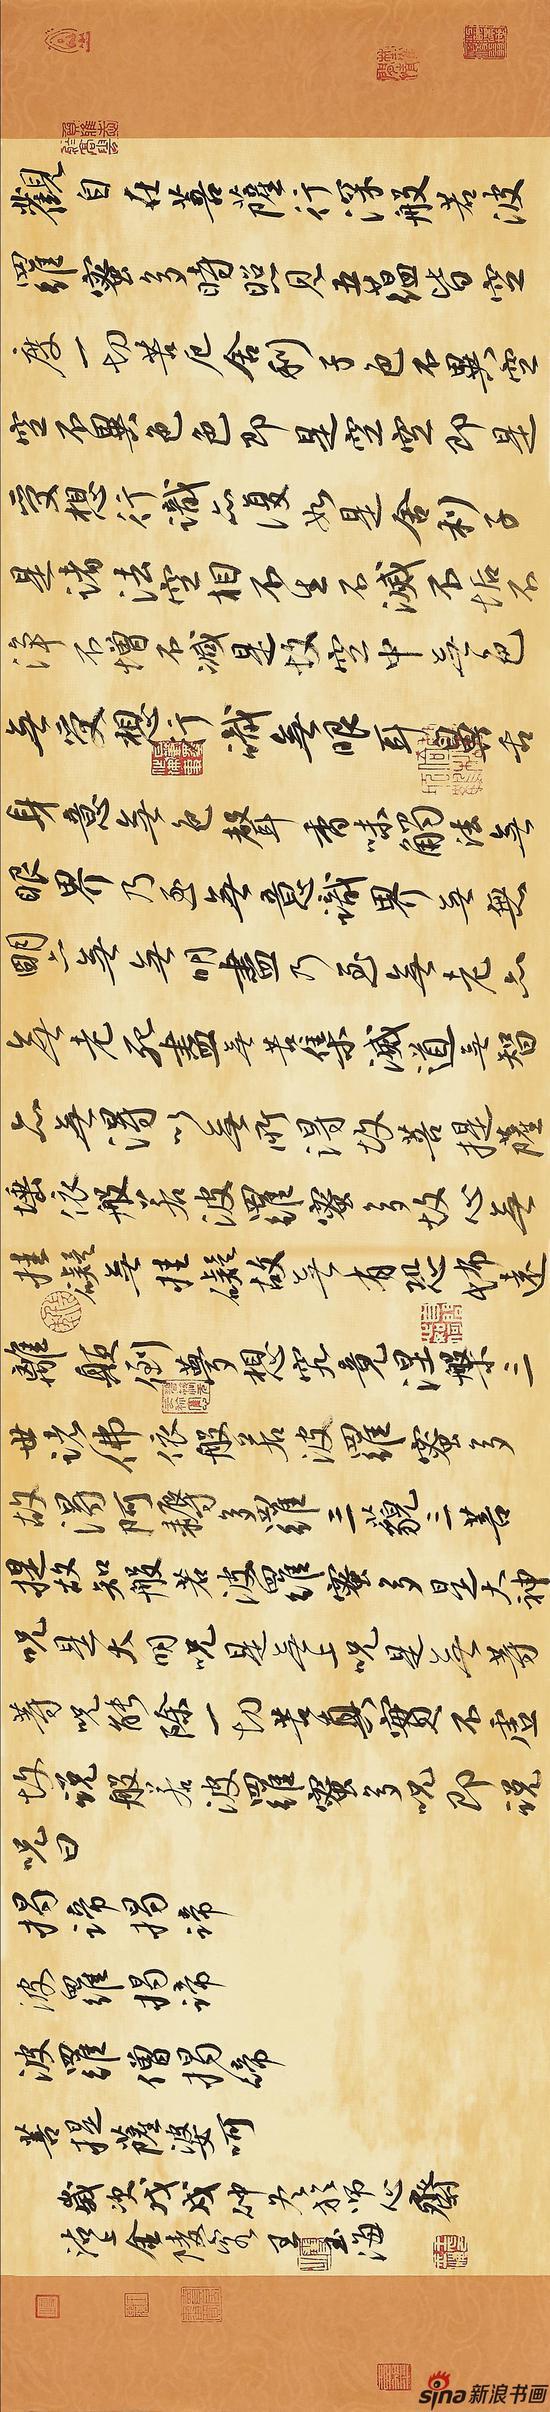 觀自在菩薩行深般若波
羅蜜多時照見五蘊皆空
度一切苦厄舍利子色不異空
空不異色色即是空空即是
受想行識亦復如是舍利子
是諸法空相不生不滅不垢不
淨不增不減是故空中無色
無受想行識無眼耳鼻舌
身意無色聲香味觸法無
眼界乃至無意識界無無
明亦無無明盡乃至無老亦
無老死盡無苦集滅道無智
亦無得以無所得故菩提薩
埵依般若波羅蜜多故心無
挂礙無挂礙故無有恐怖遠
離顛倒夢想究竟涅槃三
世諸佛依般若波羅蜜多
故得阿耨多羅三藐三菩
提故知般若波羅蜜多是大神
呪是大明呪是無上呪是無等
等呪能除一切苦真實不虛
故說般若波羅蜜多呪即說
呪曰
揭諦揭諦
波羅揭諦
波羅僧揭諦
菩提薩婆呵
歲次戊戌仲冬心齋
金陵客王海
sina新浪书画